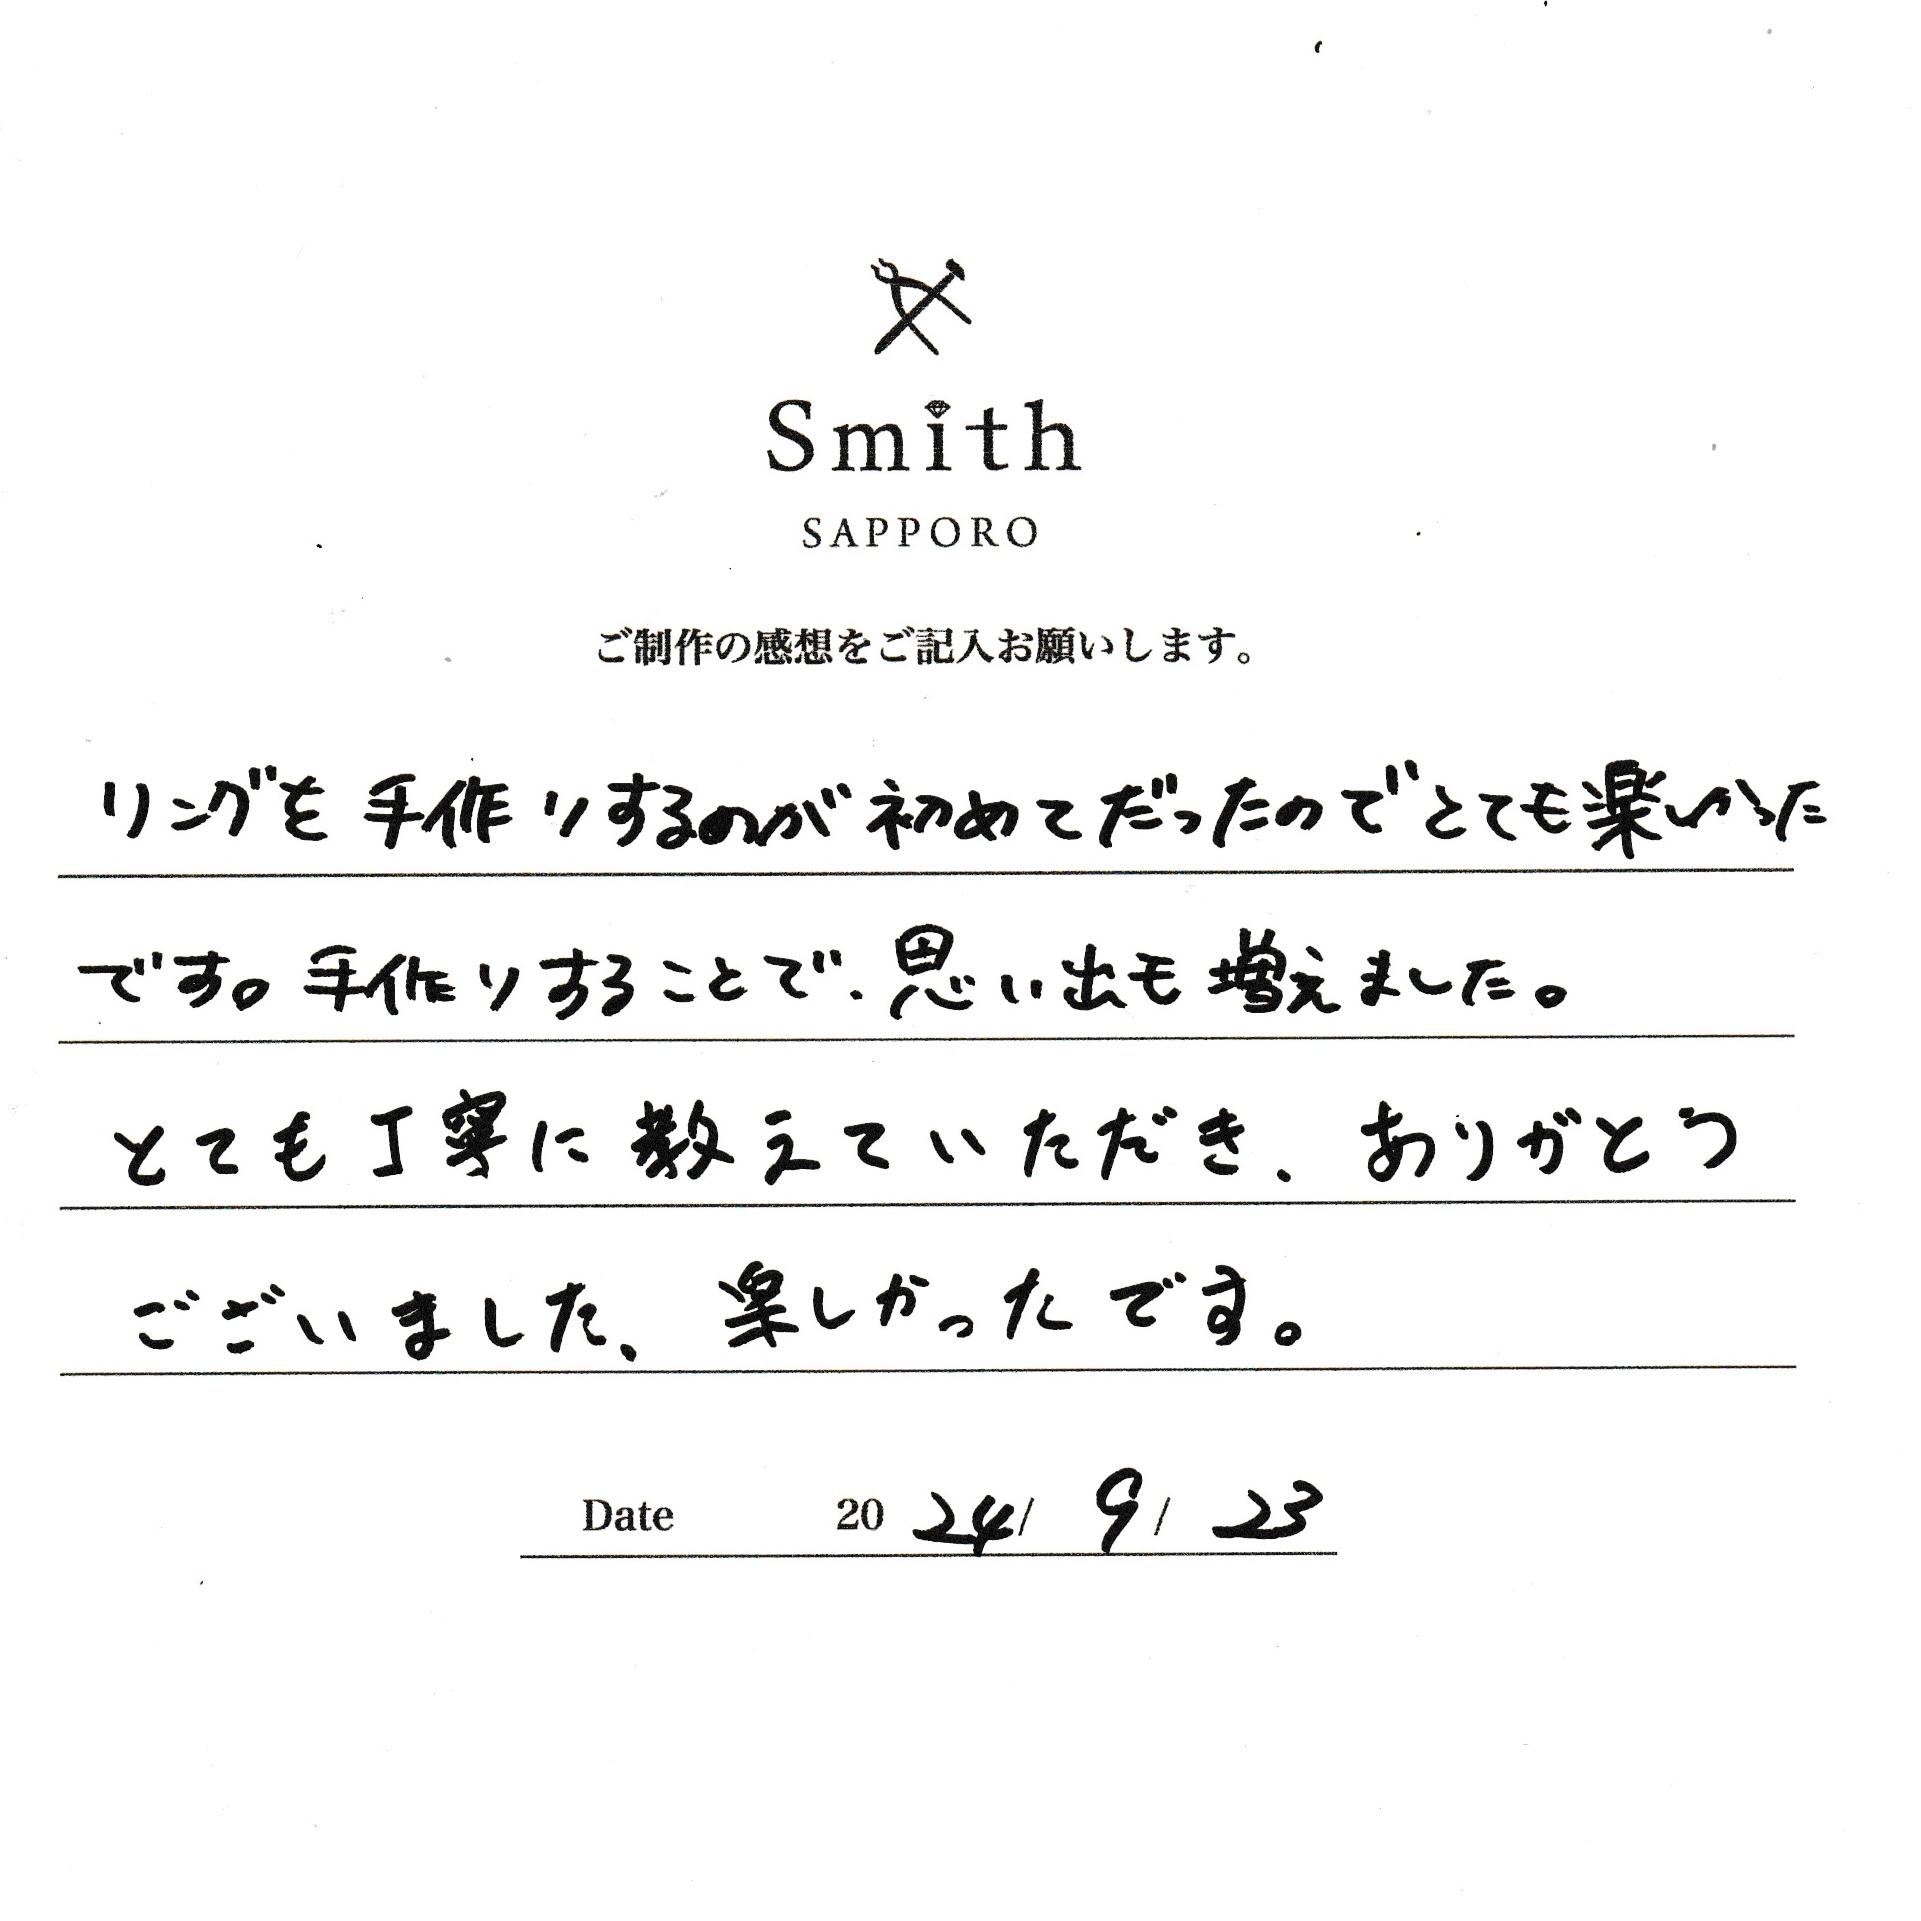 Smith
SAPPORO
ご制作の感想をご記入お願いします。
リングを手作りするのが初めてだったのでとても楽しかった
です。手作りすることで、思い出も増えました。
とても丁寧に教えていただき、ありがとう
ございました、楽しかったです。
Date 2024/ 9/ 23